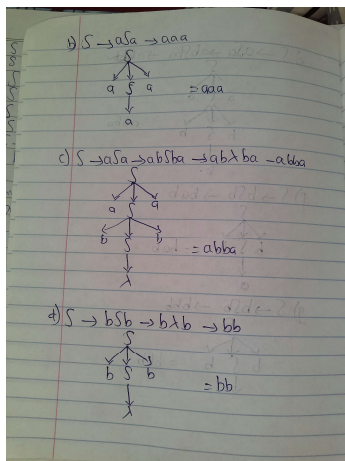 b) S → aSa → aaa
S
a S a = aaa
a
c) S → aSa → abSba → abλba → abba
S
a S a
b S b = abba
λ
d) S → bSb → bλb → bb
S
b S b = bb
λ